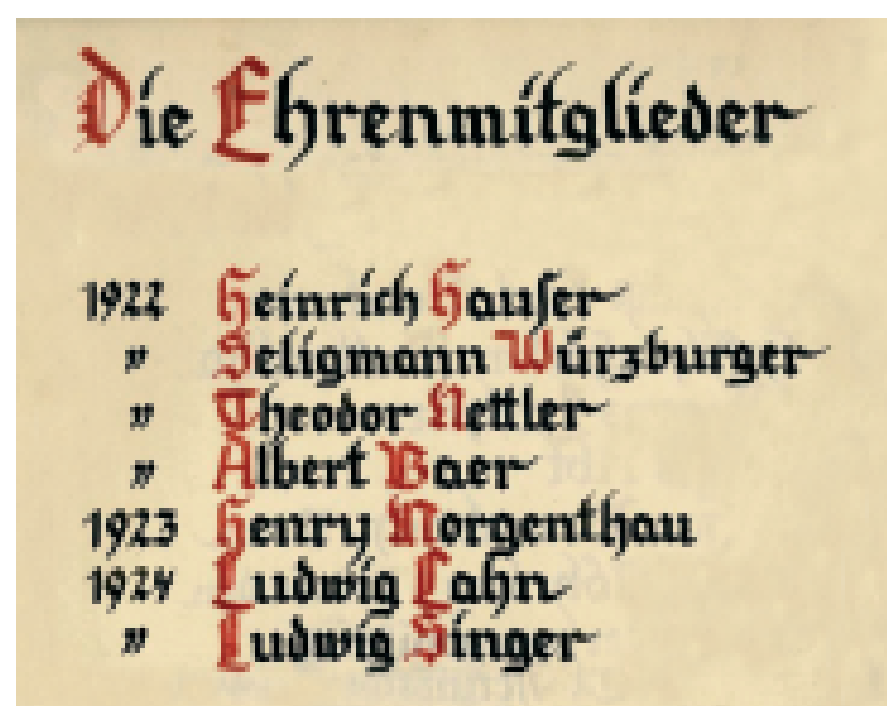 Die Ehrenmitglieder
1922 Heinrich Hauser
" Seligmann Würzburger
" Theodor Nettler
" Albert Baer
1923 Henry Morgenthau
1924 Ludwig Cahn
" Ludwig Singer